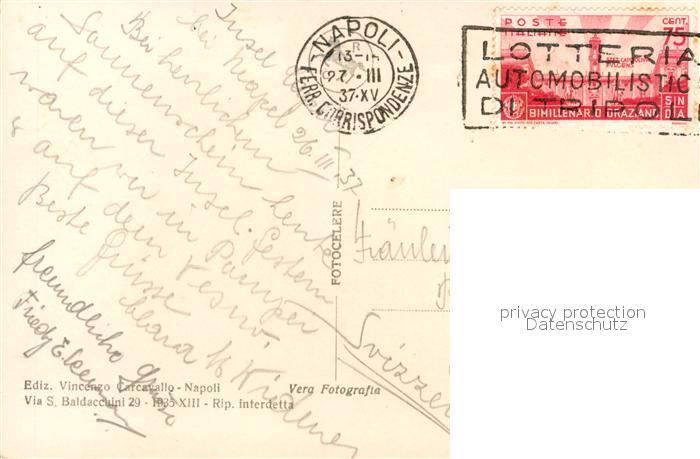 Insel
bei Neapel 26. III. 37
Bei herrlichem
Sonnenschein heute
auf dieser Insel. Gestern
waren wir in Pompei
& auf dem Vesuv.
Beste Grüsse
Clara
freundliche Grüsse
Friedy
NAPOLI
13-
27 · III
37-XV
FERR. CORRISPONDENZE
POSTE
ITALIANE
CENT.
75
BIMILLENARIO ORAZIANO
LOTTERIA
AUTOMOBILISTIC
DI TRIPOL
FOTOCELERE
Fräulein
Svizzer
privacy protection
Datenschutz
Ediz. Vincenzo Carcavallo - Napoli
Via S. Baldacchini 29 - 1935 XIII - Rip. interdetta
Vera Fotografia